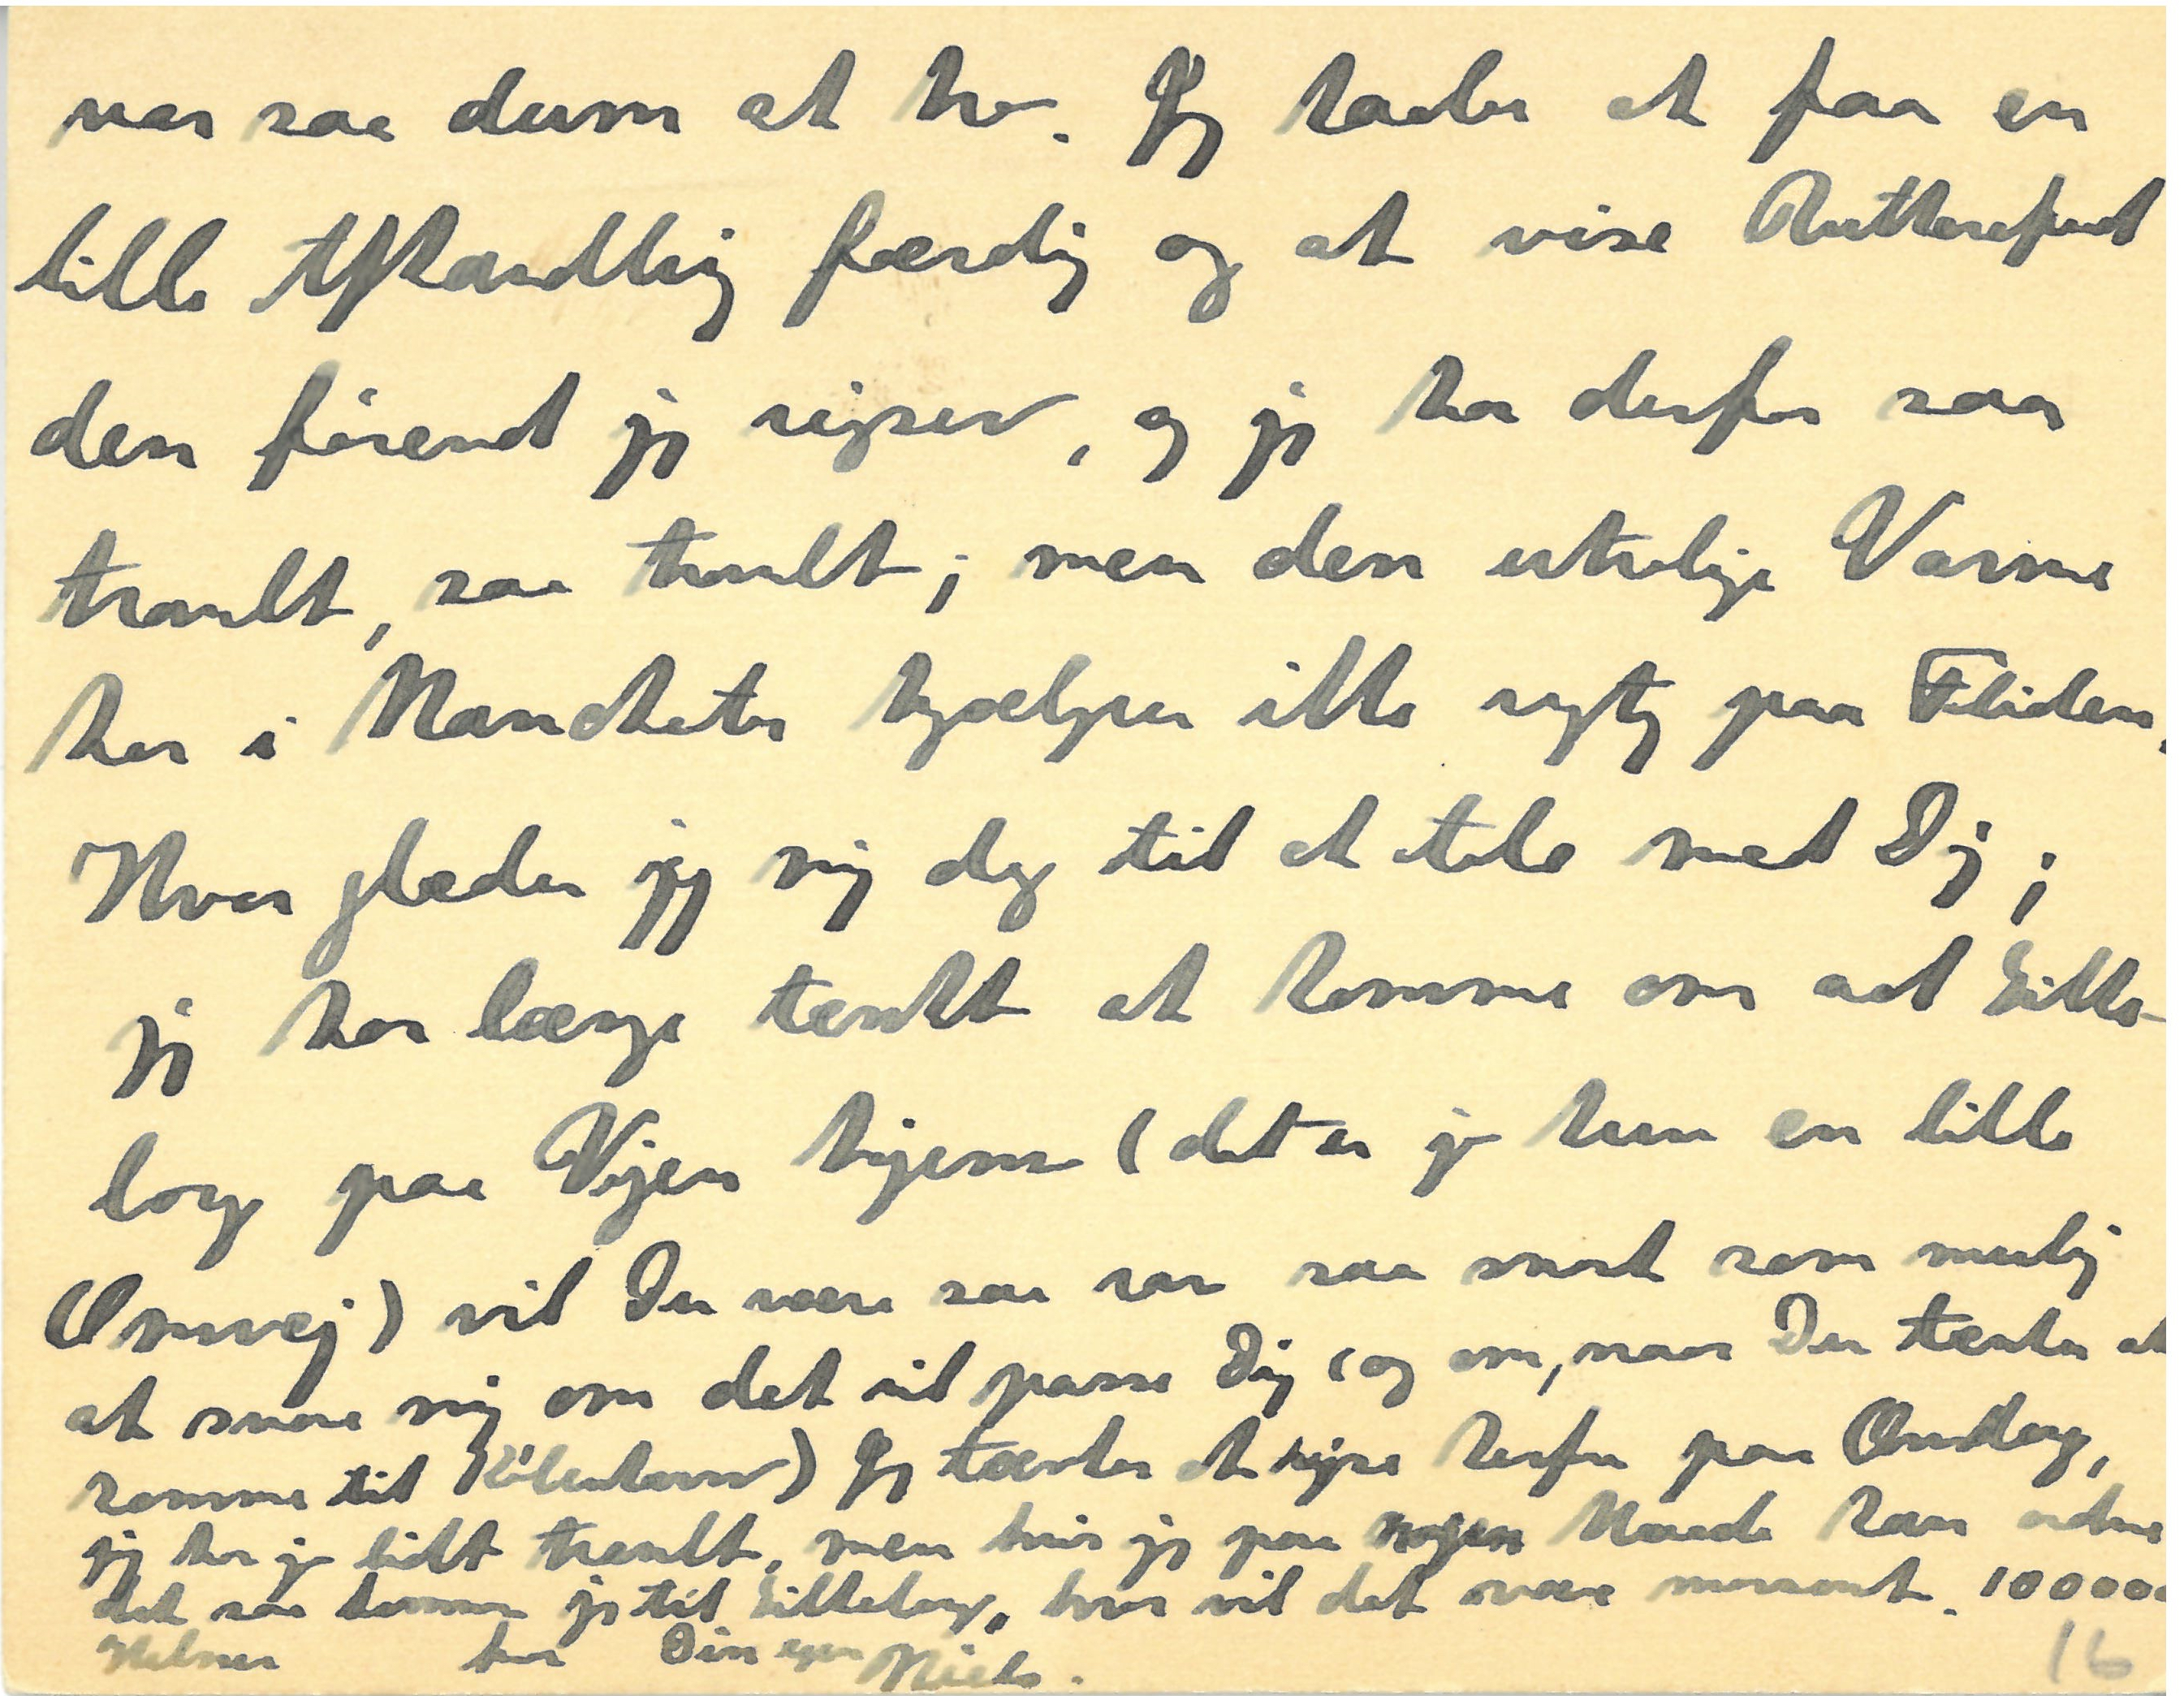 var saa dum at tro. Jeg haaber at faa en
lille Afhandling færdig og at vise Rutherford
den förend jeg rejser, og jeg har derfor saa
travlt, saa travlt; men den utrolige Varme
her i Manchester hjælper ikke rigtig paa Fliden.
Hvor glæder jeg mig dog til at tale med Dig;
jeg har længe tænkt at komme om ad Lille-
log paa Vejen hjem (det er jo kun en lille
Omvej) vil Du være saa rar saa snart som mulig
at svare mig om det vil passe Dig (og om, naar Du tænker at
komme til Köbenhavn) Jeg tænker at rejse herfra paa Onsdag,
jeg har jo lidt travlt, men hvis jeg paa nogen Maade kan ordne
det saa kommer jeg til, hvor vil det være morsomt. 10000
Hilsner fra Din egen Niels.
16